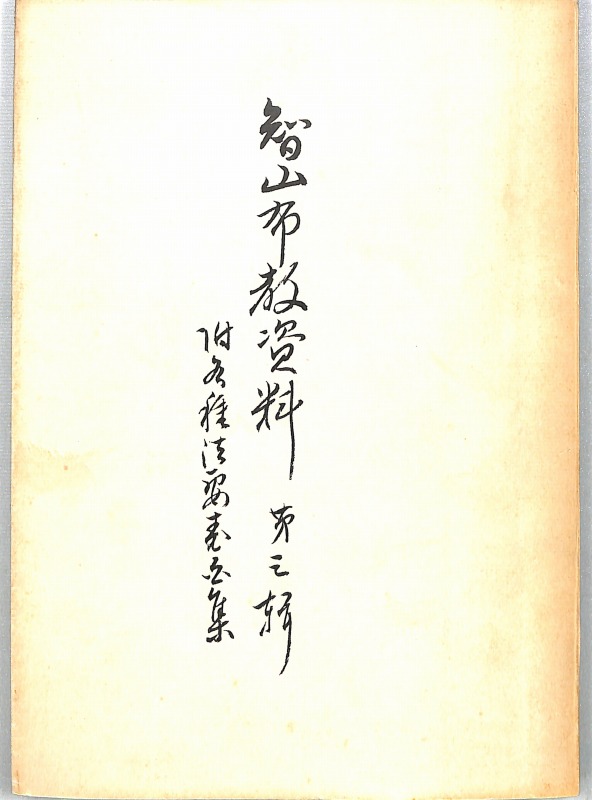 智山布教資料 第三輯
附各種法要表白集